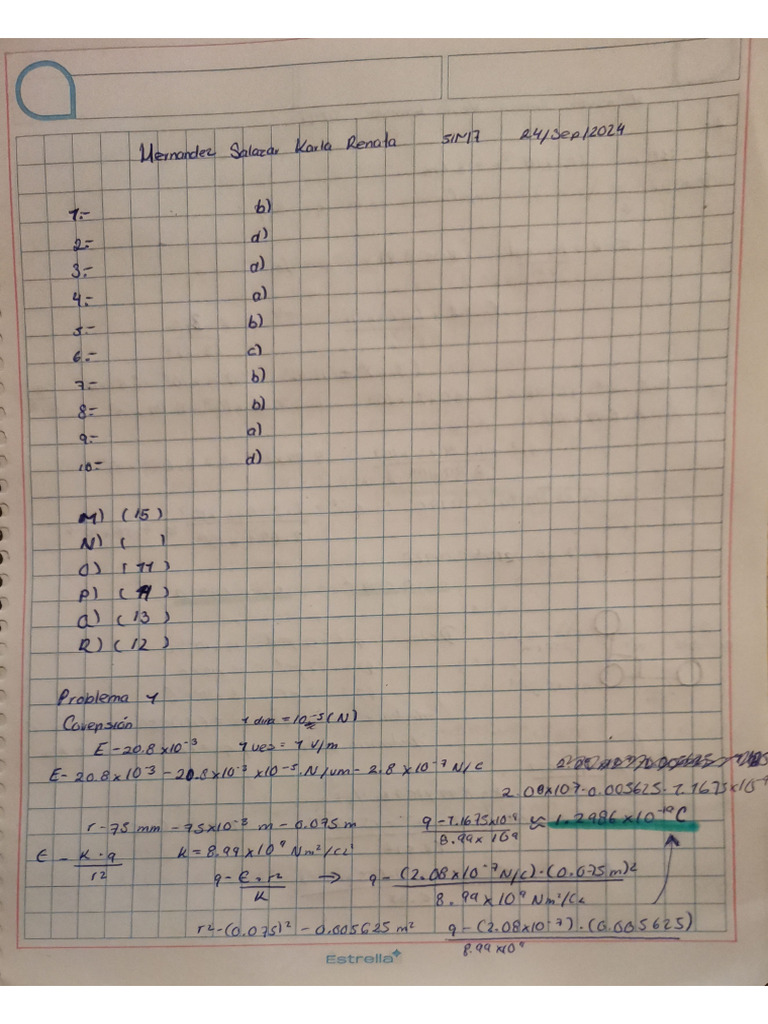 Hernandez Salazar Karla Renata 5IM7 24/Sep/2024
1.- b)
2.- d)
3.- d)
4.- a)
5.- b)
6.- c)
7.- b)
8.- b)
9.- a)
10.- d)
M) (15)
N) ( )
O) (11)
P) (14)
Q) (13)
R) (12)
Problema 1
Covensión 1 dina = 10^-5 (N)
E - 20.8 x 10^-3 1 ues = 1 V/m
E - 20.8 x 10^-3 - 20.8 x 10^-3 x 10^-5 . N/um - 2.8 x 10^-7 N/C
2.08 x 10^7 . 0.005625 - 1.1675 x 10^-9
r - 75 mm - 75 x 10^-3 m - 0.075 m q - 1.1675 x 10^-9 / 8.99 x 10^9 ≈ 1.2986 x 10^-19 C
E - K . q / r2 K = 8.99 x 10^9 Nm²/C²
q - E . r² / K → q - (2.08 x 10^-7 N/C) . (0.075 m)² / 8.99 x 10^9 Nm²/C²
r² - (0.075)² - 0.005625 m² q - (2.08 x 10^-7) . (0.005625) / 8.99 x 10^9
Estrella